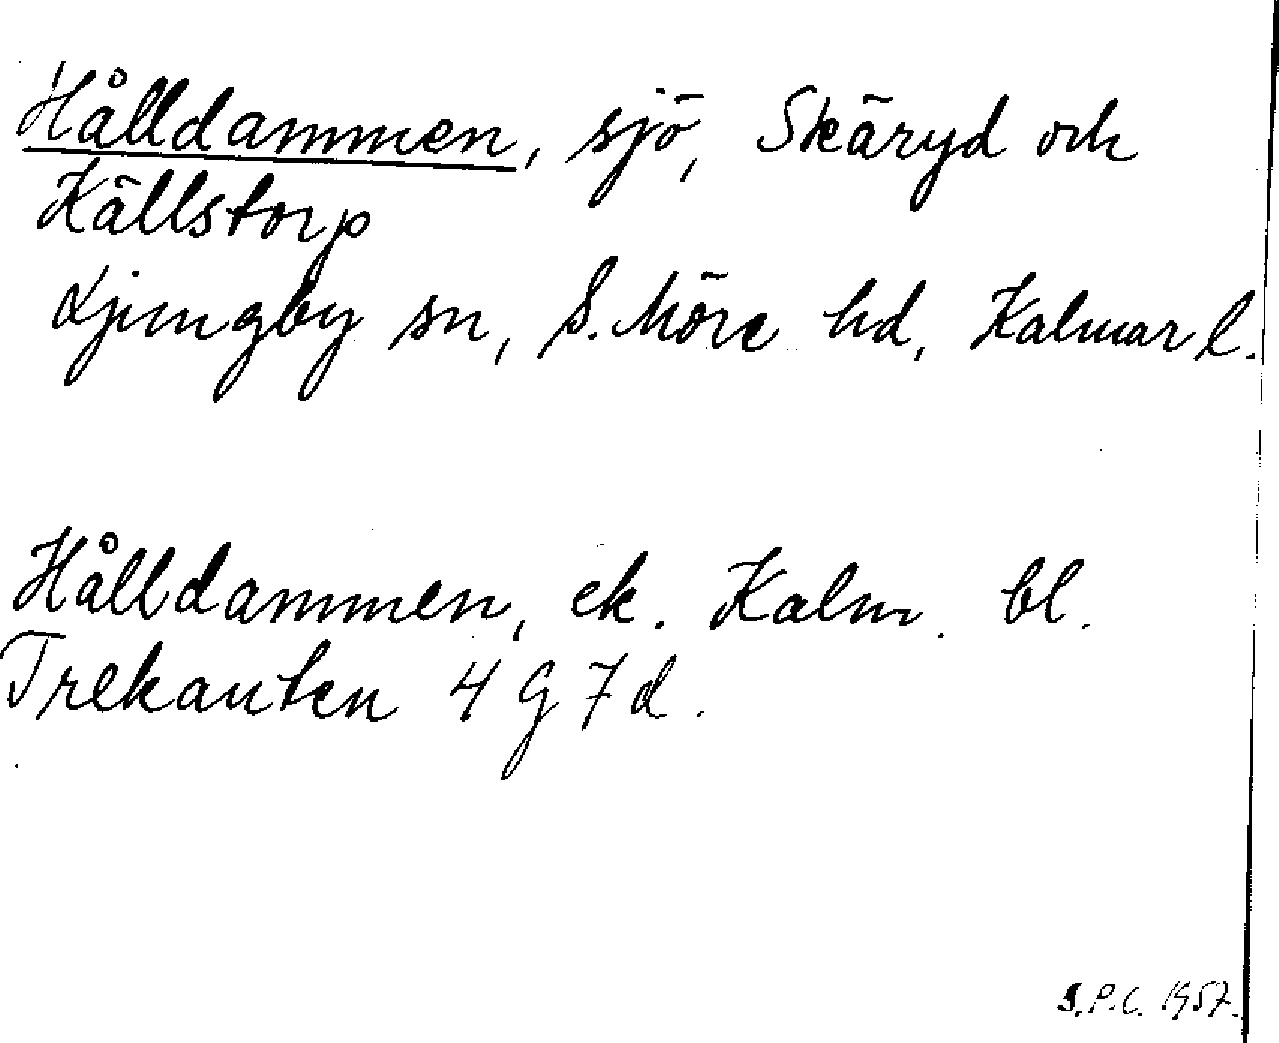 Hålldammen, sjö, Skäryd och
Källstorp
Ljungby sn, S. Möre hd, Kalmar l.
Hålldammen, ek. Kalm. bl.
Trekanten 4 G 7 d.
S.P.C. 1957.